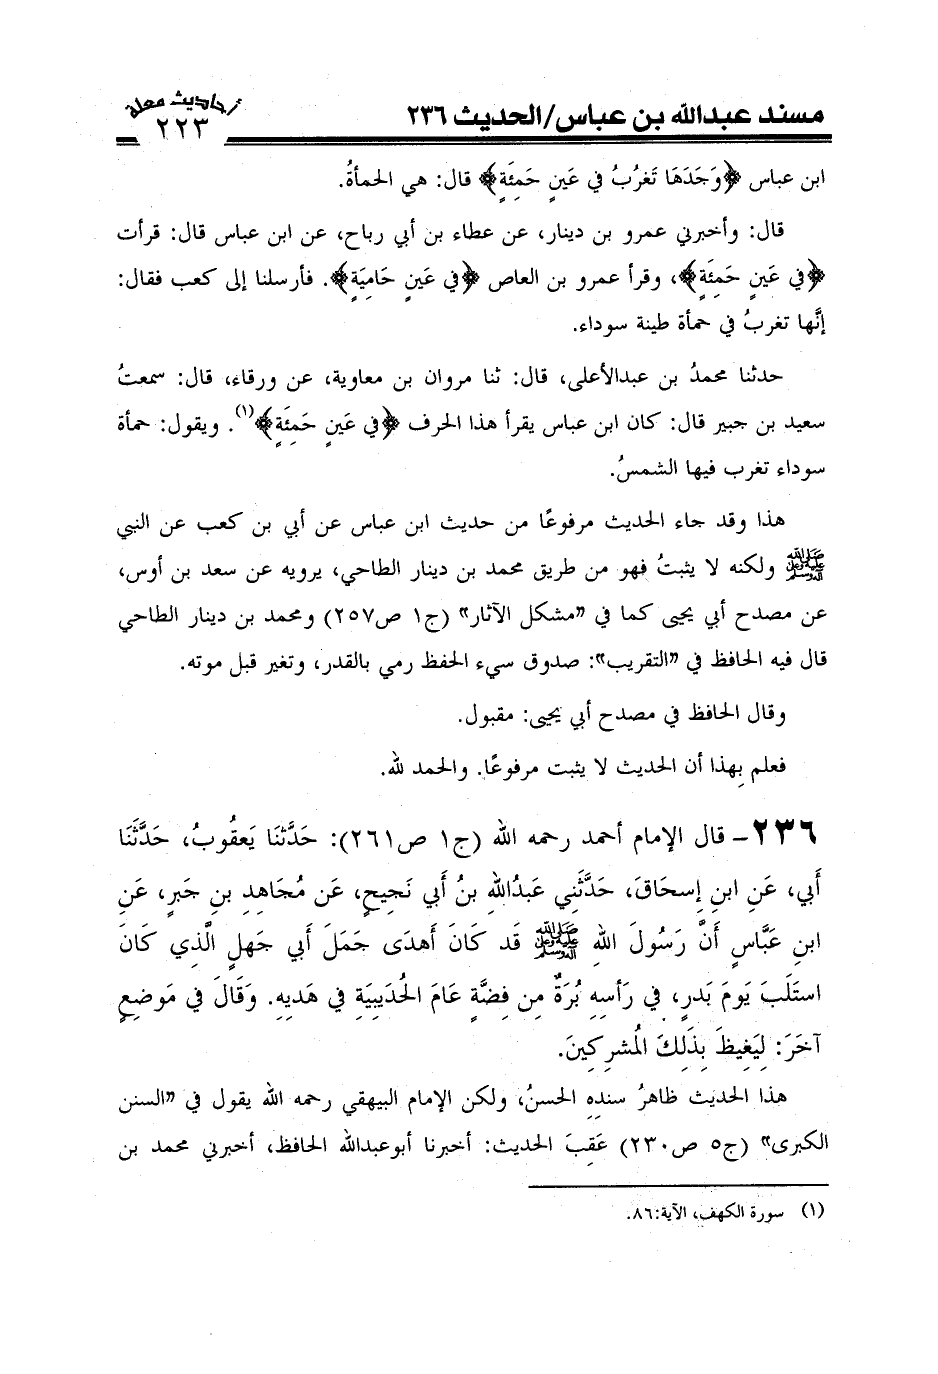 مسند عبدالله بن عباس/الحديث ٢٣٦
أحاديث معلة
٢٢٣
ابن عباس ﴿وَجَدَهَا تَغرُبُ في عَينٍ حَمِئَةٍ﴾ قال: هي الحمأةُ.
قال: وأخبرني عمرو بن دينار، عن عطاء بن أبي رباح، عن ابن عباس قال: قرأت
﴿في عَينٍ حَمِئَةٍ﴾، وقرأ عمرو بن العاص ﴿في عَينٍ حَامِيَةٍ﴾. فأرسلنا إلى كعب فقال:
إنَّها تغربُ في حمأة طينة سوداء.
حدثنا محمدُ بن عبدالأعلى، قال: ثنا مروان بن معاوية، عن ورقاء، قال: سمعتُ
سعيد بن جبير قال: كان ابن عباس يقرأ هذا الحرف ﴿في عَينٍ حَمِئَةٍ﴾(١). ويقول: حمأة
سوداء تغرب فيها الشمسُ.
هذا وقد جاء الحديث مرفوعًا من حديث ابن عباس عن أبي بن كعب عن النبي
ﷺ ولكنه لا يثبتُ فهو من طريق محمد بن دينار الطاحي، يرويه عن سعد بن أوس،
عن مصدح أبي يحيى كما في «مشكل الآثار» (ج١ ص٢٥٧) ومحمد بن دينار الطاحي
قال فيه الحافظ في «التقريب»: صدوق سيء الحفظ رمي بالقدر، وتغير قبل موته.
وقال الحافظ في مصدح أبي يحيى: مقبول.
فعلم بِهذا أن الحديث لا يثبت مرفوعًا. والحمد لله.
٢٣٦- قال الإمام أحمد رحمه الله (ج١ ص٢٦١): حَدَّثَنَا يَعقُوبُ، حَدَّثَنَا
أَبي، عَنِ ابنِ إِسحَاقَ، حَدَّثَنِي عَبدُاللهِ بنُ أَبي نَجِيحٍ، عَن مُجَاهِدِ بنِ جَبرٍ، عَنِ
ابنِ عَبَّاسٍ أَنَّ رَسُولَ اللهِ ﷺ قَد كَانَ أَهدَى جَمَلَ أَبي جَهلٍ الَّذِي كَانَ
استَلَبَ يَومَ بَدرٍ، في رَأسِهِ بُرَةٌ مِن فِضَّةٍ عَامَ الحُدَيبِيَةِ في هَديِهِ. وَقَالَ في مَوضِعٍ
آخَرَ: لِيَغِيظَ بِذَلِكَ المُشرِكِينَ.
هذا الحديث ظاهرُ سندِهِ الحسنُ، ولكن الإمام البيهقي رحمه الله يقول في «السنن
الكبرى» (ج٥ ص٢٣٠) عَقِبَ الحديث: أخبرنا أبوعبدالله الحافظ، أخبرني محمد بن
(١) سورة الكهف، الآية:٨٦.